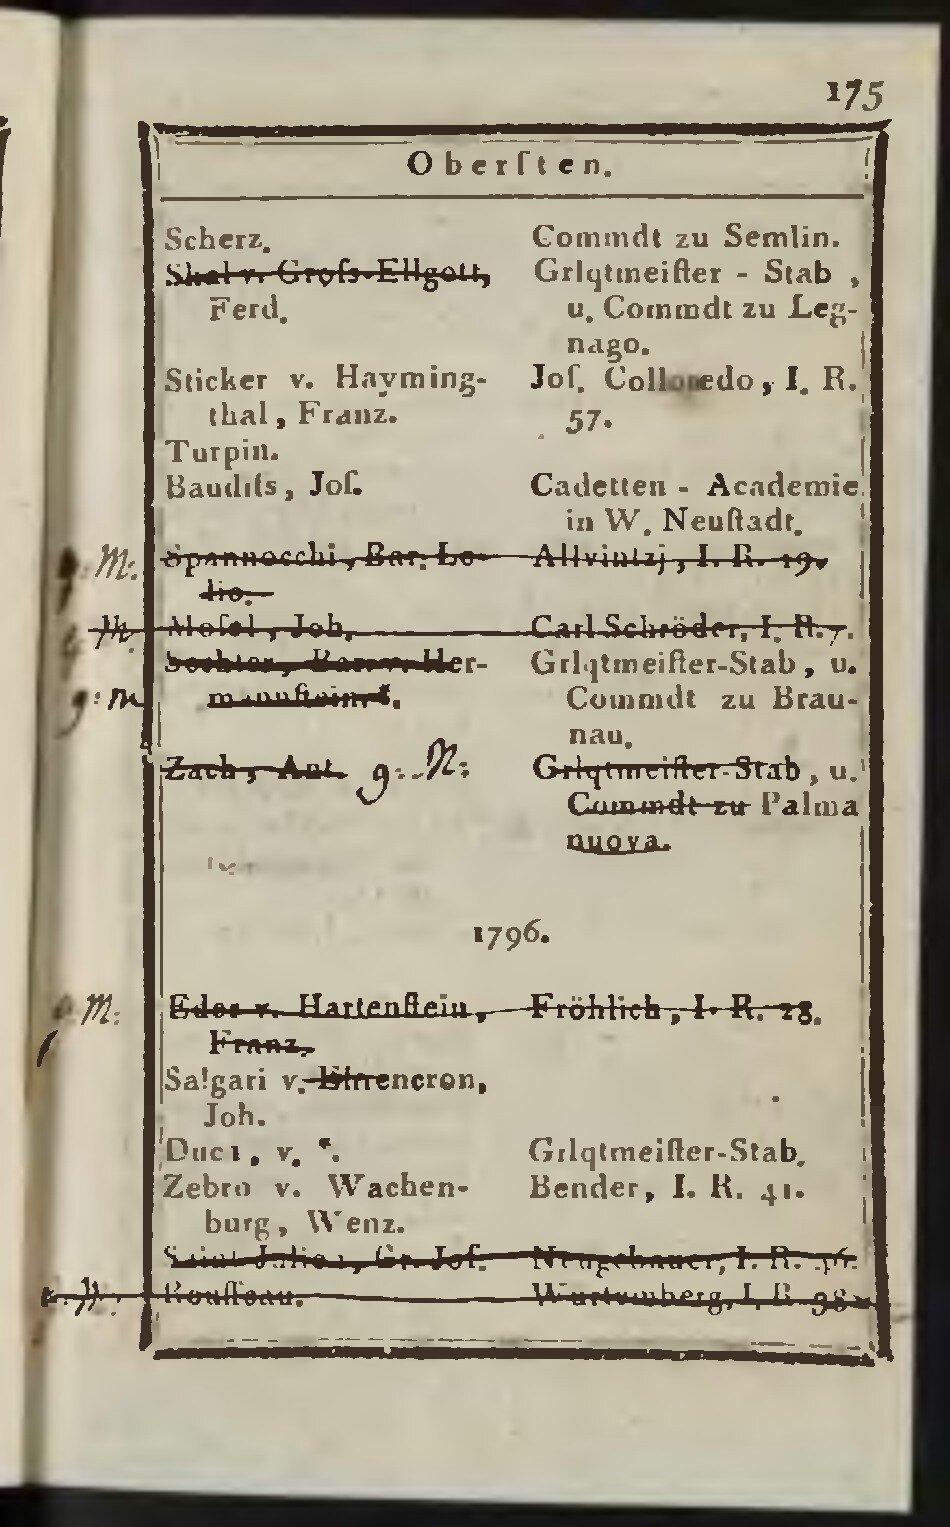 175
Oberſten.
Scherz. Commdt zu Semlin.
Skal v. Groſs-Ellgott, Grlqtmeiſter - Stab ,
Ferd. u. Commdt zu Leg-
nago.
Sticker v. Hayming- Joſ. Colloredo, I. R.
thal, Franz. 57.
Turpin.
Baudiſs, Joſ. Cadetten - Academie
in W. Neuſtadt.
g: M: Spannocchi, Bar. Le- Allvintzj, I. R. 19.
lio.
g. M. Moſel, Joh. Carl Schröder, I. R. 7.
Bar. v. Her- Grlqtmeiſter-Stab, u.
g: m mannſtein, Commdt zu Brau-
nau.
Zach, Ant. g: M: Grlqtmeiſter-Stab, u.
Commdt zu Palma
nuova.
1796.
g. M: Eder v. Hartenſtein, Fröhlich, I. R. 28.
Franz.
Salgari v. Ehrencron,
Joh.
Duci, v. Grlqtmeiſter-Stab.
Zebro v. Wachen- Bender, I. R. 41.
burg, Wenz.
Saint Julien, Gr. Joſ. Neugebauer, I. R.
Rouſſeau. Würtemberg, I. R. 38.